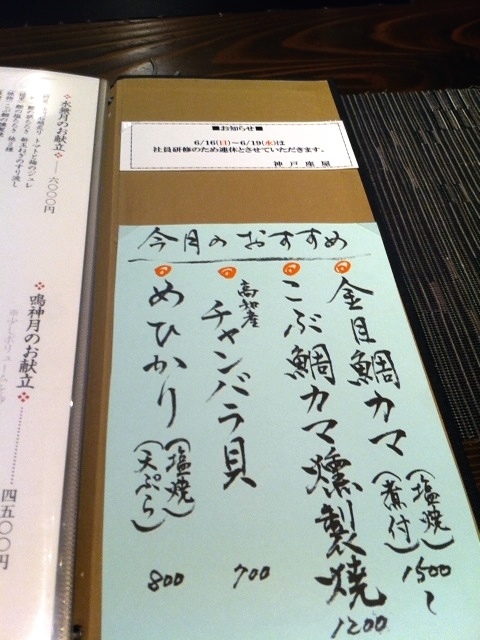 ■お知らせ■
6/16(日)～6/19(水)は
社員研修のため連休とさせていただきます。
神戸座屋
今月のおすすめ
金目鯛カマ
(塩焼)
(煮付)
1500〜
こぶ鯛カマ燻製焼
1200
高知産
チャンバラ貝
700
めひかり
(塩焼)
(天ぷら)
800
水無月のお献立
六〇〇〇円
鳴神月のお献立
四五〇〇円